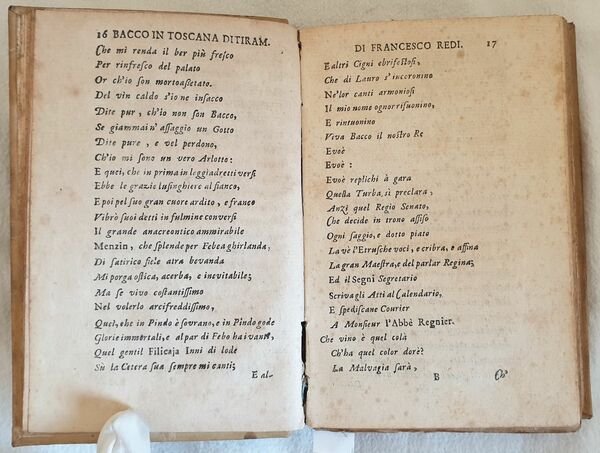 16 BACCO IN TOSCANA DITIRAM.
Che mi renda il ber più fresco
Per rinfresco del palato
Or ch'io son mortoassetato.
Del vin caldo s'io ne insacco
Dite pur, ch'io non son Bacco,
Se giammai n'assaggio un Gotto
Dite pure, e vel perdono,
Ch'io mi sono un vero Arlotto:
E quei, che in prima in leggiadretti versi
Ebbe le grazie lusinghiere al fianco,
E poi pel suo gran cuore ardito, e franco
Vibrò suoi detti in fulmine conversi
Il grande anacreontico ammirabile
Menzin, che splende per Febea ghirlanda,
Di satirico fiele atra bevanda
Mi porga ostica, acerba, e inevitabile;
Ma se vivo costantissimo
Nel volerlo arcifreddissimo,
Quei, che in Pindo è sovrano, e in Pindo gode
Glorie immortali, e al par di Febo hai vanti,
Quel gentil Filicaja Inni di lode
Sù la Cetera sua sempre mi canti;
E al-
DI FRANCESCO REDI. 17
E altri Cigni ebrifestosi,
Che di Lauro s'incoronino
Ne'lor canti armoniosi
Il mio nome ognor risuonino,
E rintuonino
Viva Bacco il nostro Re
Evoè
Evoè:
Evoè replichi à gara
Quella Turba, sì preclara,
Anzi quel Regio Senato,
Che decide in trono assiso
Ogni saggio, e dotto piato
Là vè l'Etrusche voci, e cribra, e affina
La gran Maestra, e del parlar Regina;
Ed il Segni Segretario
Scriva gli Atti al Calendario,
E spediscane Courier
A Monsieur l'Abbè Regnier.
Che vino è quel colà
Ch'ha quel color dorè?
La Malvagia sarà,
B Ch'